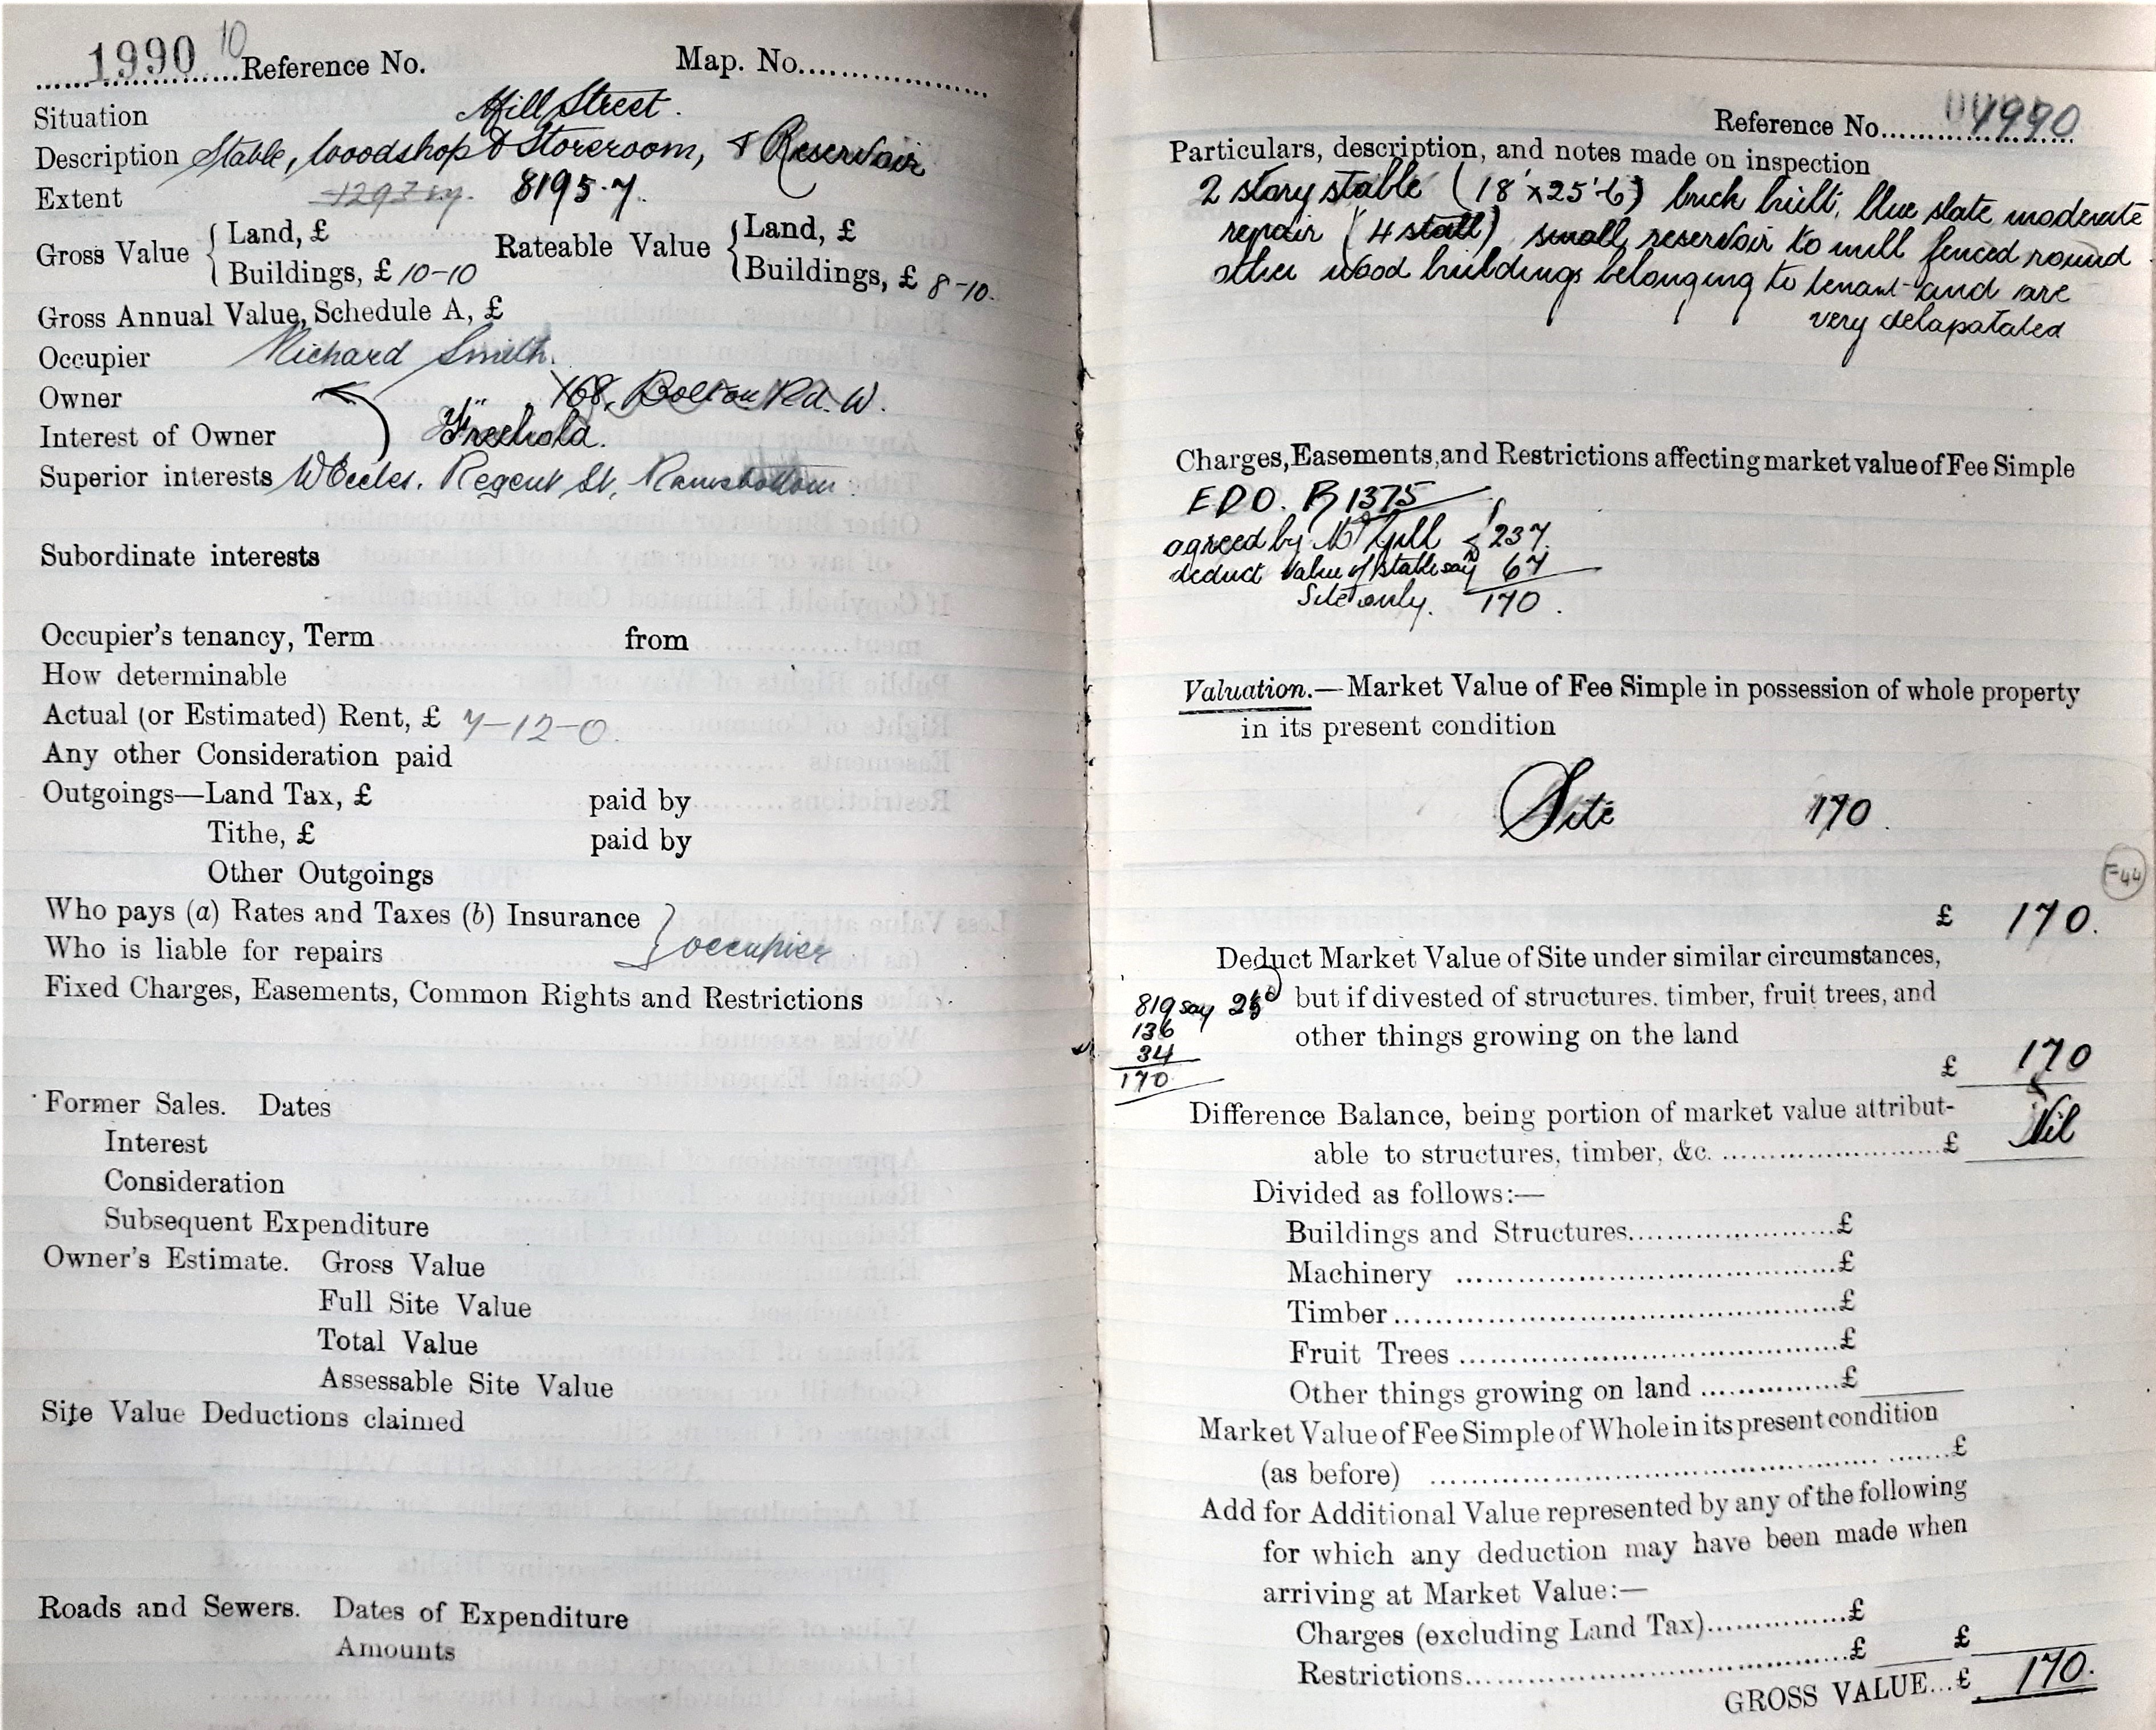 1990 10 Reference No. Map. No.
Situation Mill Street.
Description Stable, Woodshop & Storeroom, & Reservoir
Extent 1293 sy. 819 s.y.
Gross Value { Land, £ Rateable Value { Land, £
Buildings, £ 10-10 Buildings, £ 8-10.
Gross Annual Value, Schedule A, £
Occupier Richard Smith.
Owner " 168, Bolton Rd. W.
Interest of Owner Freehold.
Superior interests W Eccles. Regent St, Ramsbottom.
Subordinate interests
Occupier's tenancy, Term from
How determinable
Actual (or Estimated) Rent, £ 7-12-0.
Any other Consideration paid
Outgoings—Land Tax, £ paid by
Tithe, £ paid by
Other Outgoings
Who pays (a) Rates and Taxes (b) Insurance
Who is liable for repairs } occupier
Fixed Charges, Easements, Common Rights and Restrictions
Former Sales. Dates
Interest
Consideration
Subsequent Expenditure
Owner's Estimate. Gross Value
Full Site Value
Total Value
Assessable Site Value
Site Value Deductions claimed
Roads and Sewers. Dates of Expenditure
Amounts
Reference No. 1990
Particulars, description, and notes made on inspection
2 story stable (18' x 25'-6) brick built, blue slate moderate
repair (4 stall) small reservoir to mill fenced round
other wood buildings belonging to tenant and are
very delapatated
Charges, Easements, and Restrictions affecting market value of Fee Simple
EDO. R 1375
agreed by Mr Gill £ 237.
deduct value of stable say 67
Site only. 170.
Valuation.—Market Value of Fee Simple in possession of whole property
in its present condition
Site 170.
F44
£ 170.
Deduct Market Value of Site under similar circumstances,
819 say 2/6 but if divested of structures. timber, fruit trees, and
136
other things growing on the land
34
£ 170
170
Difference Balance, being portion of market value attribut-
able to structures, timber, &c. £ Nil
Divided as follows:—
Buildings and Structures £
Machinery £
Timber £
Fruit Trees £
Other things growing on land £
Market Value of Fee Simple of Whole in its present condition
(as before) £
Add for Additional Value represented by any of the following
for which any deduction may have been made when
arriving at Market Value:—
Charges (excluding Land Tax) £
Restrictions £ £
GROSS VALUE...£ 170.